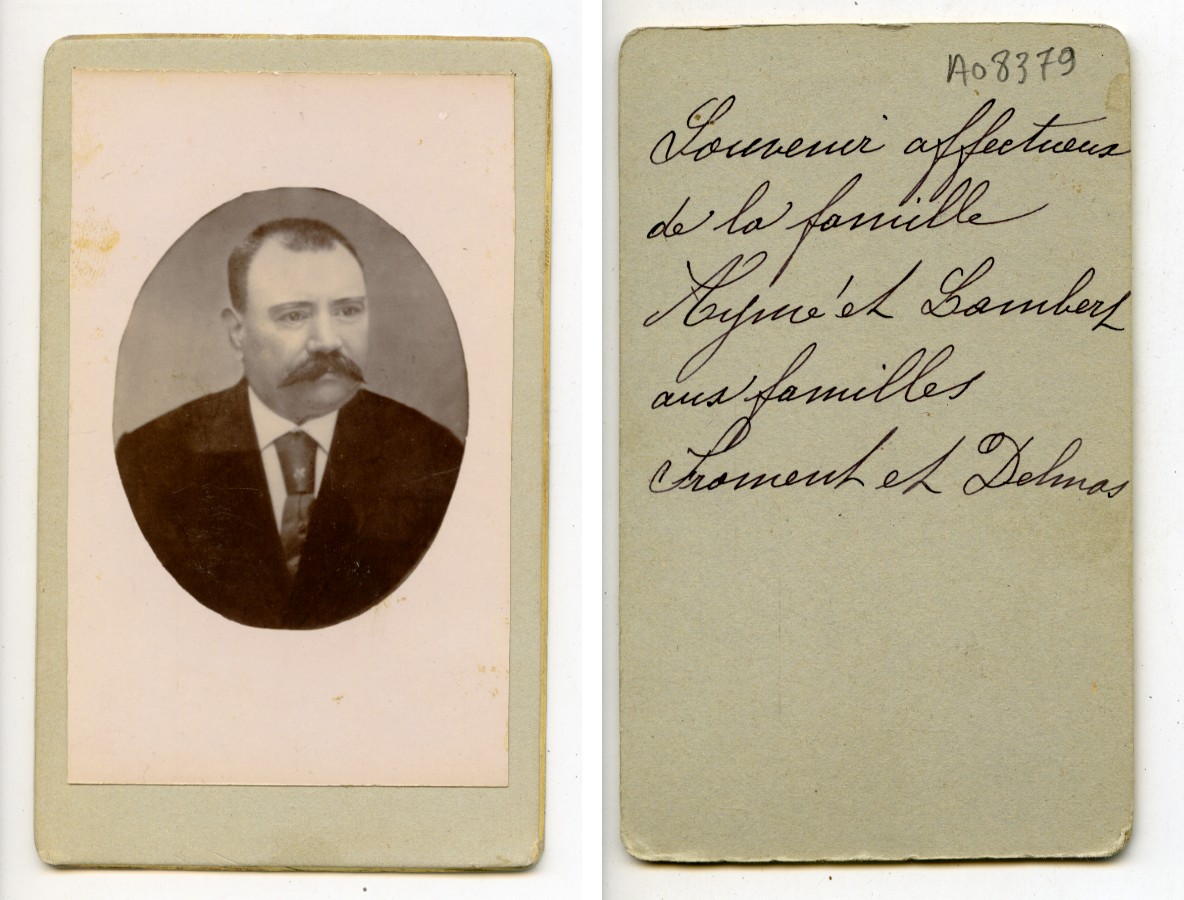 A08379
Souvenir affectueux
de la famille
Aymé et Lambert
aux familles
Froment et Delmas